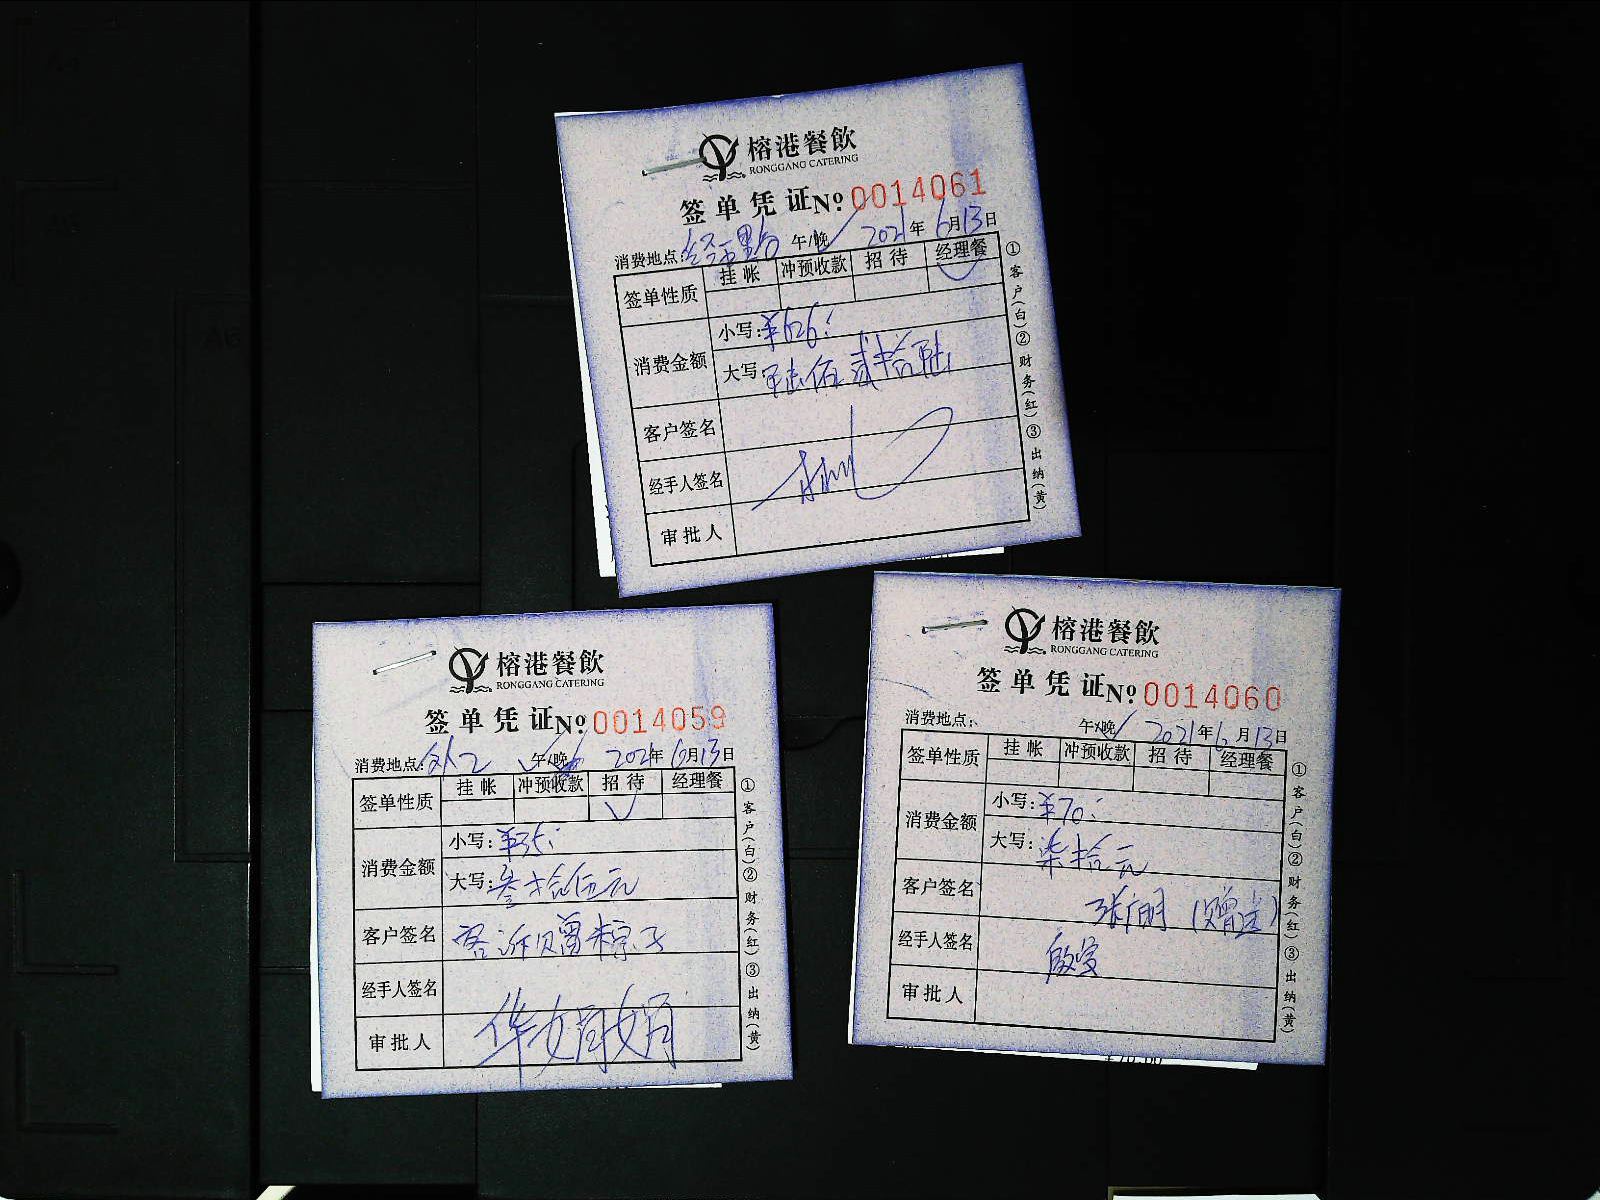 榕港餐飲
RONGGANG CATERING
签单凭证№ 0014061
消费地点: 午/晚 2021年6月13日
签单性质 挂帐 冲预收款 招待 经理餐
消费金额 小写:¥626:
大写:陆佰贰拾陆
客户签名
经手人签名
审批人
①客户(白)②财务(红)③出纳(黄)
榕港餐飲
RONGGANG CATERING
签单凭证№ 0014059
消费地点:外2 午/晚 2021年6月13日
签单性质 挂帐 冲预收款 招待 经理餐
消费金额 小写:¥35:
大写:叁拾伍元
客户签名 客诉赠粽子
经手人签名
审批人 华娟娟
①客户(白)②财务(红)③出纳(黄)
榕港餐飲
RONGGANG CATERING
签单凭证№ 0014060
消费地点: 午/晚 2021年6月13日
签单性质 挂帐 冲预收款 招待 经理餐
消费金额 小写:¥70:
大写:柒拾元
客户签名 (赠送)
经手人签名
审批人
①客户(白)②财务(红)③出纳(黄)
¥70.00